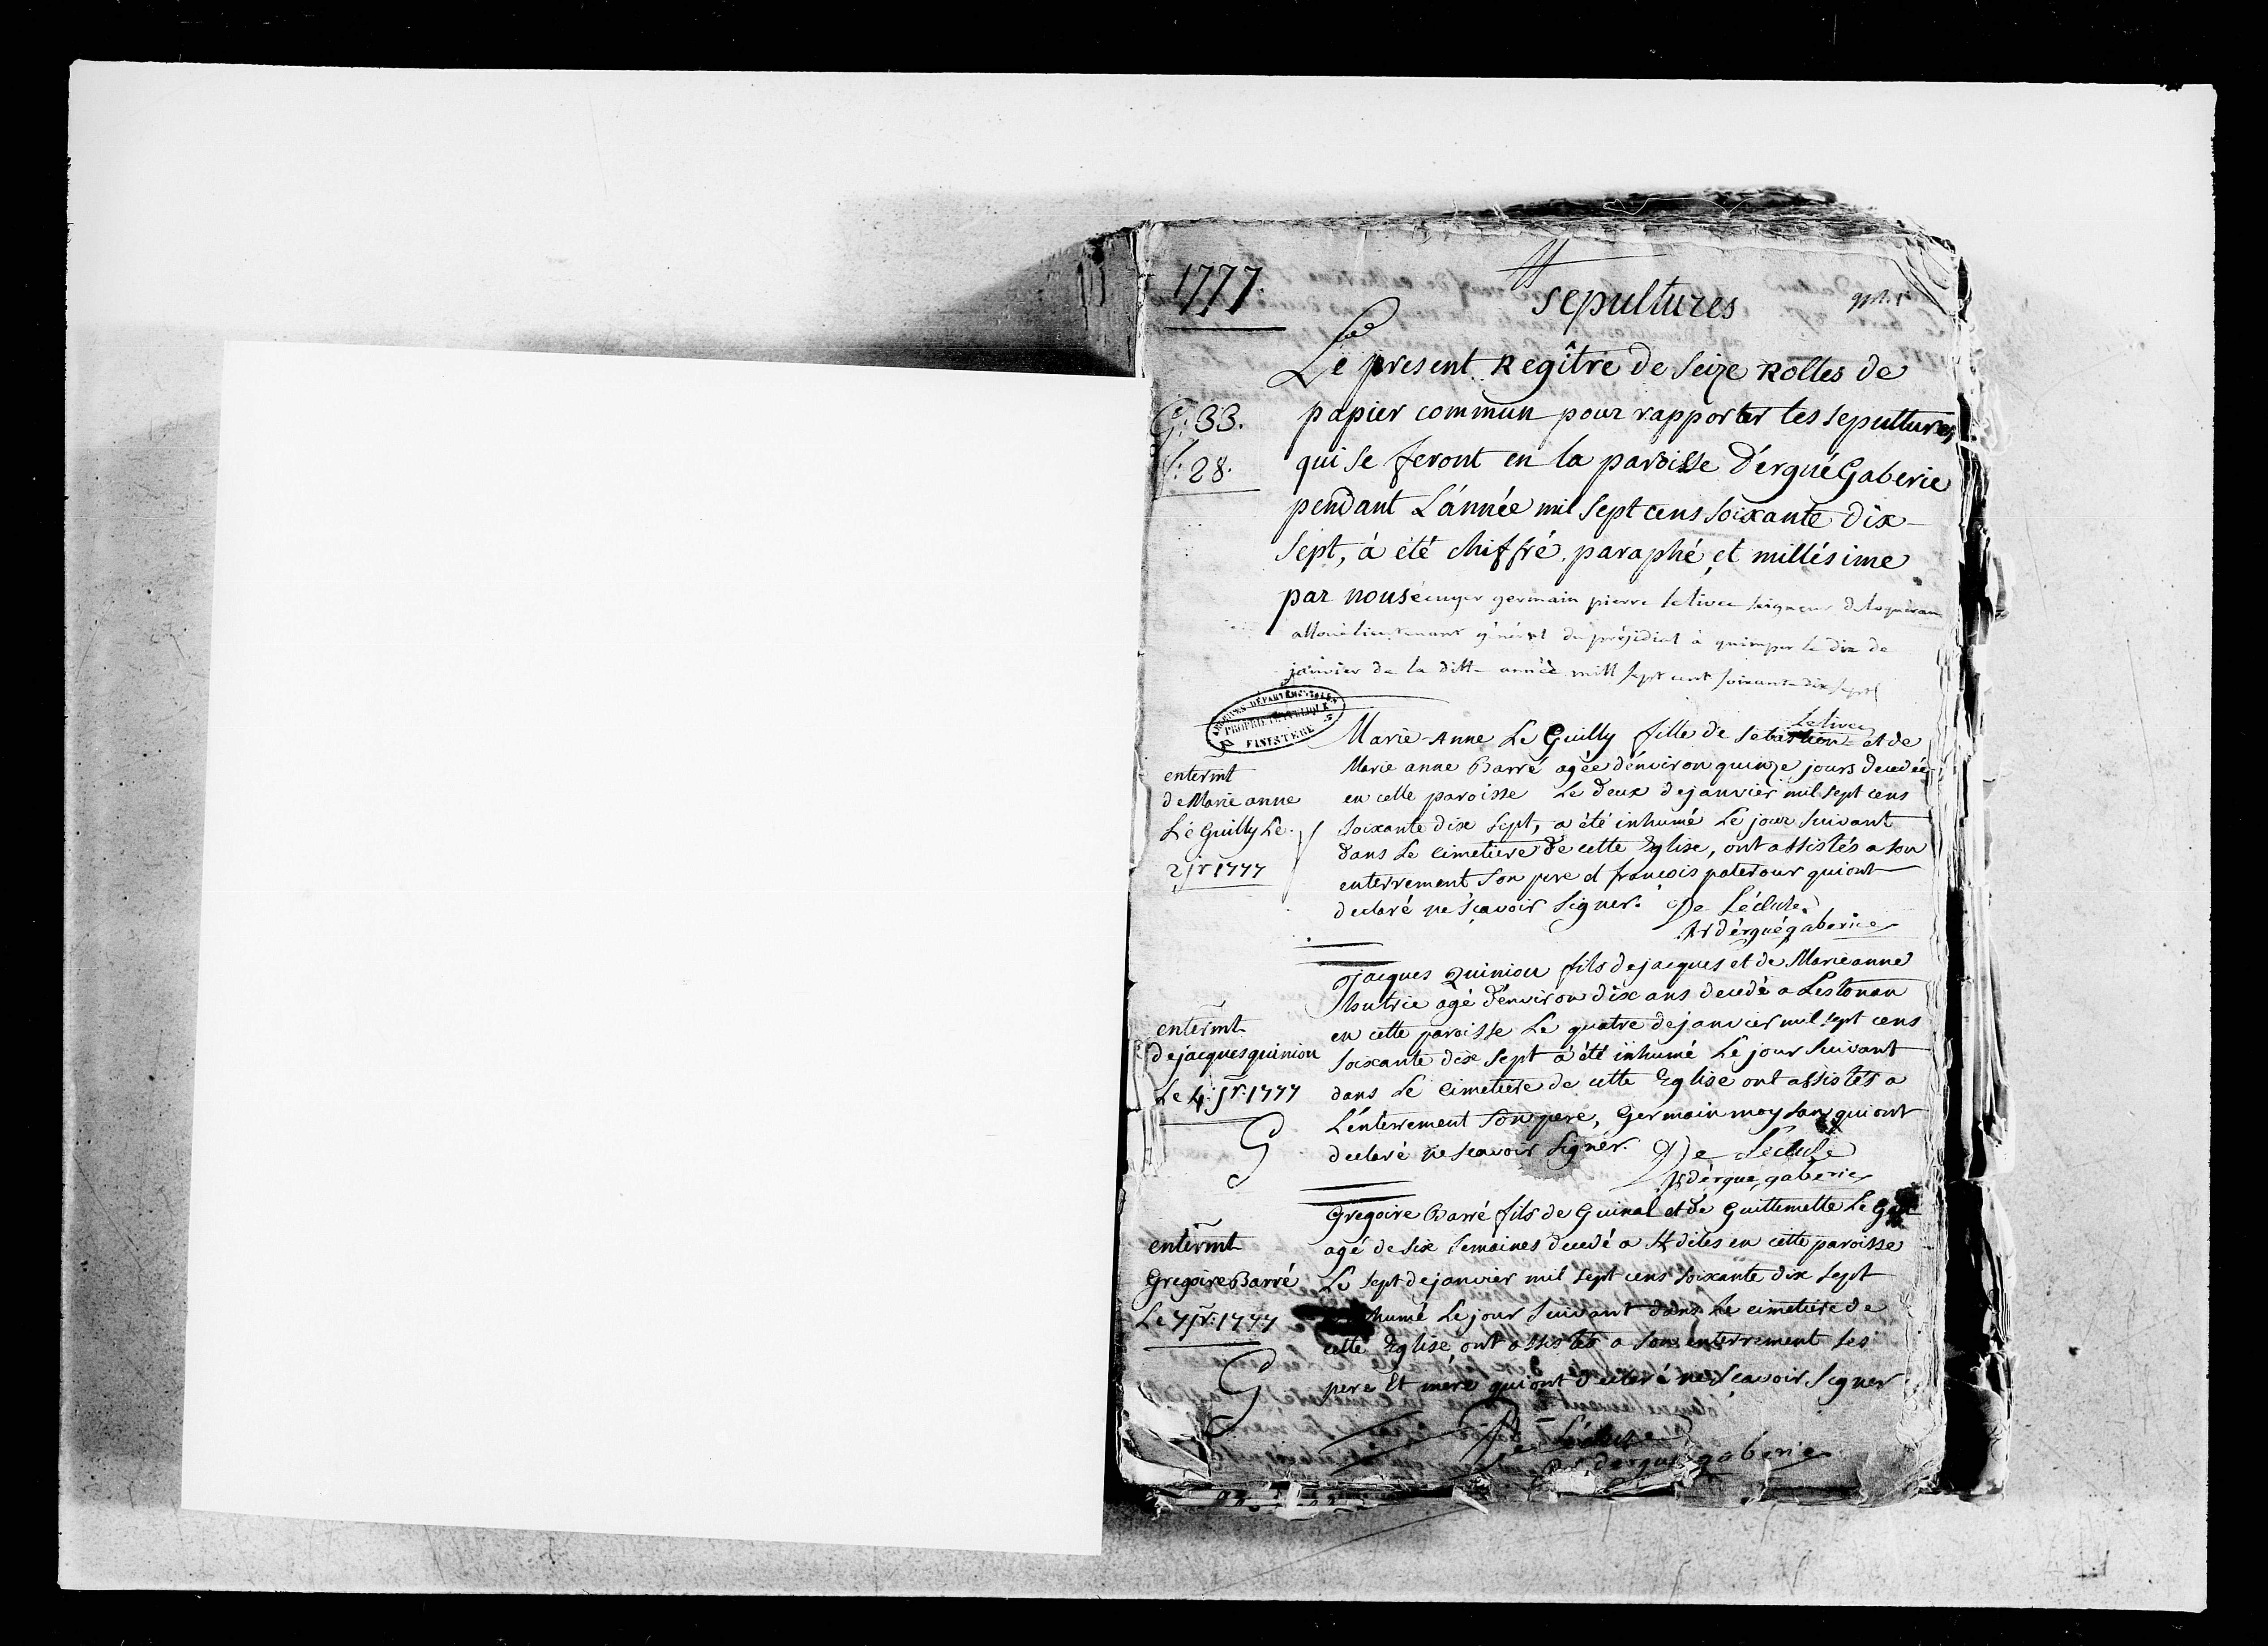 1777.
sepultures
Le present Regître de seize Rolles de
G: 33.
papier commun pour rapporter les sepultures
f: 28.
qui se feront en la paroisse D'ergué Gaberie
pendant L'année mil sept cens soixante dix
sept, à été chiffré, paraphé, et millésime
par nous écuyer germain pierre Letivec seigneur
alloué lieutenant général du présidial à quimper le dix de
janvier de la ditte année mill sept cent soixante dix sept
Letivec
ARCHIVES DÉPARTEMENTALES
PROPRIÉTÉ PUBLIQUE
FINISTÈRE
Marie-Anne Le Guilly fille de Sebastien et de
Marie anne Barré agée d'environ quinze jours decedée
en cette paroisse Le deux de janvier mil sept cens
soixante dix sept, a été inhumé Le jour suivant
dans Le cimetiere de cette Eglise, ont assistés a son
enterrement son pere et françois paterour qui ont
declaré ne sçavoir signer. De Lécluse
Rr d'ergué gaberice
entermt
de Marie anne
Le Guilly Le
2 jr 1777
Jacques Quiniou fils de jacques et de Marie anne
agé d'environ dix ans decedé a Lestonan
en cette paroisse Le quatre de janvier mil sept cens
soixante dix sept a été inhumé Le jour suivant
dans Le Cimetiere de cette Eglise ont assistés a
L'enterrement son pere, Germain moysan qui ont
declaré ne sçavoir signer. De Lécluse
Rr d'ergué gaberic
entermt
de jacques quiniou
Le 4. jr. 1777
G
Gregoire Barré fils de Guinal et de Guillemette Le
agé de six semaines decedé a en cette paroisse
Le sept de janvier mil sept cens soixante dix sept
humé Le jour suivant dans Le cimetiere de
cette Eglise, ont assistés a son enterrement ses
pere et mere qui ont declaré ne sçavoir signer
De Lécluse
Rr d'ergué gaberic
entermt
Gregoire Barré
Le 7 jr. 1777
G